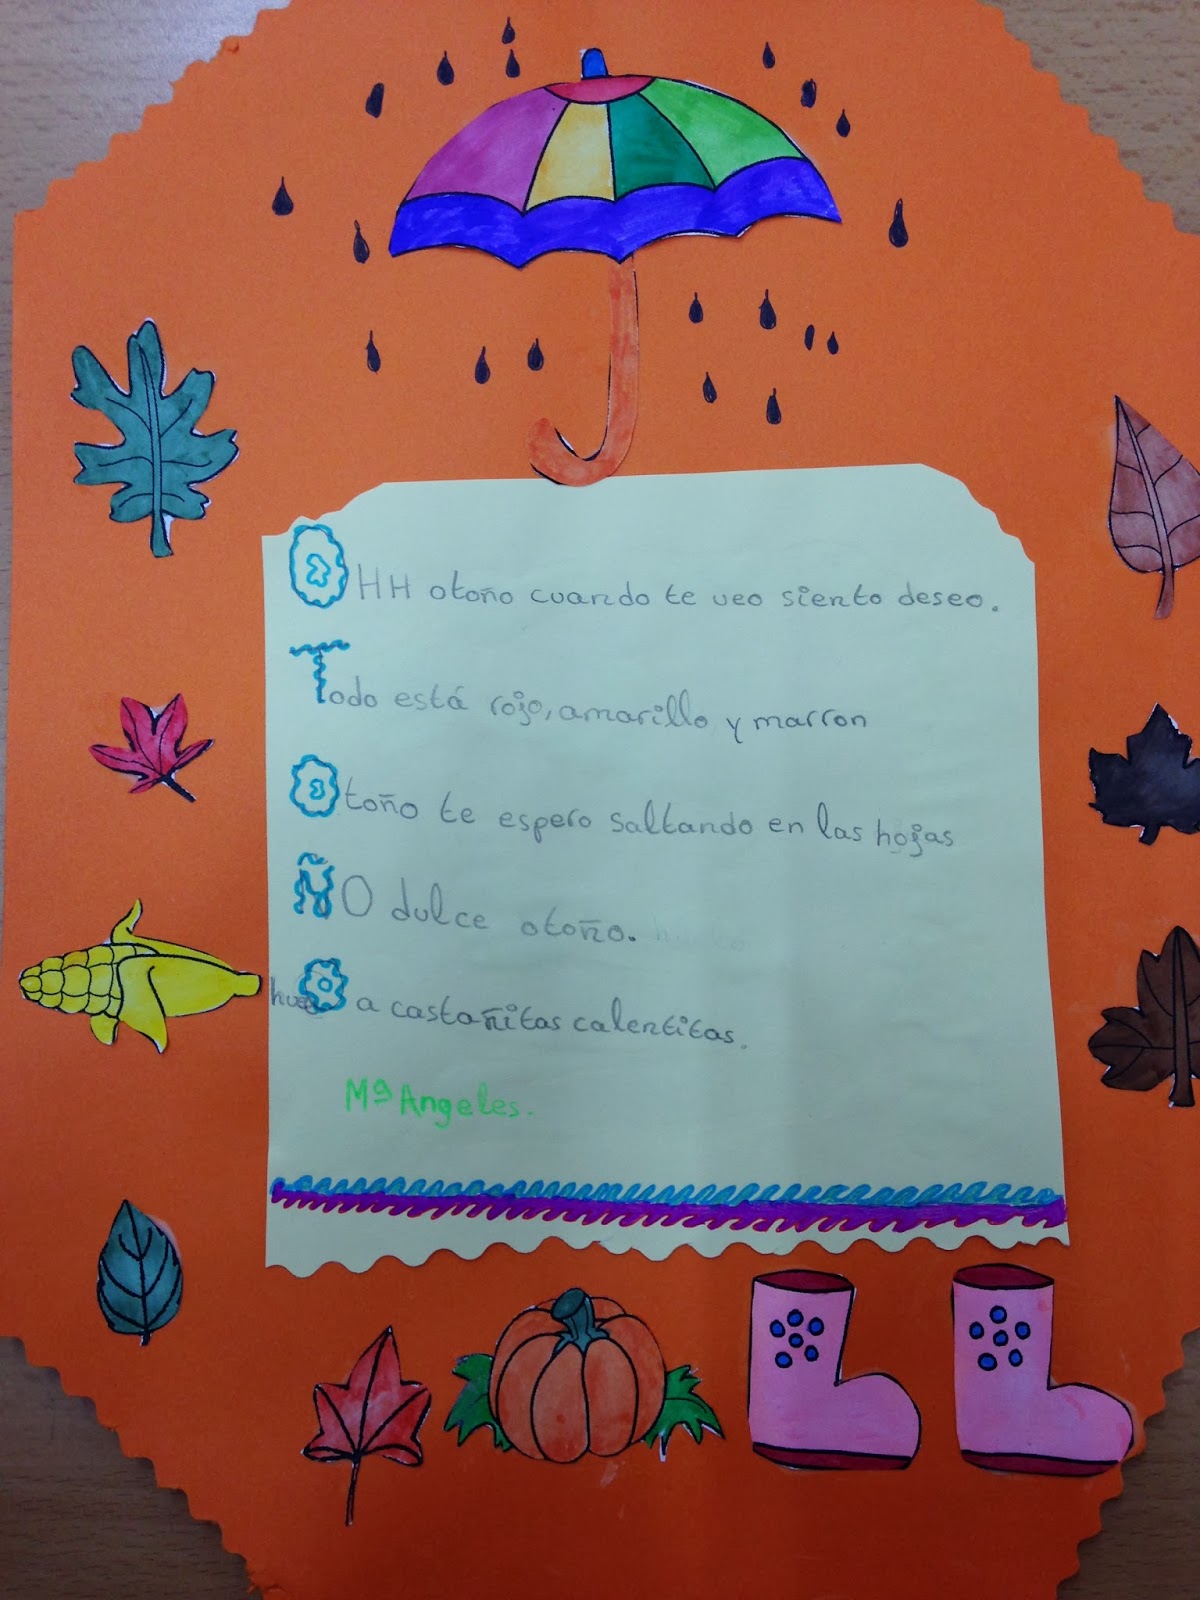 OHH otoño cuando te veo siento deseo.
Todo está rojo, amarillo y marron
Otoño te espero saltando en las hojas
ÑO dulce otoño.
hueO a castañitas calentitas.
Mª Angeles.